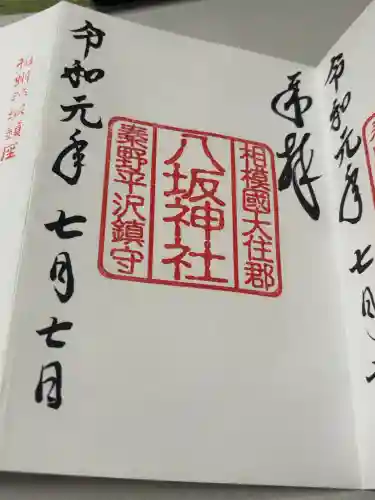 令和元年七月
奉拝
相模國大住郡
八坂神社
秦野平沢鎮守
令和元年七月七日